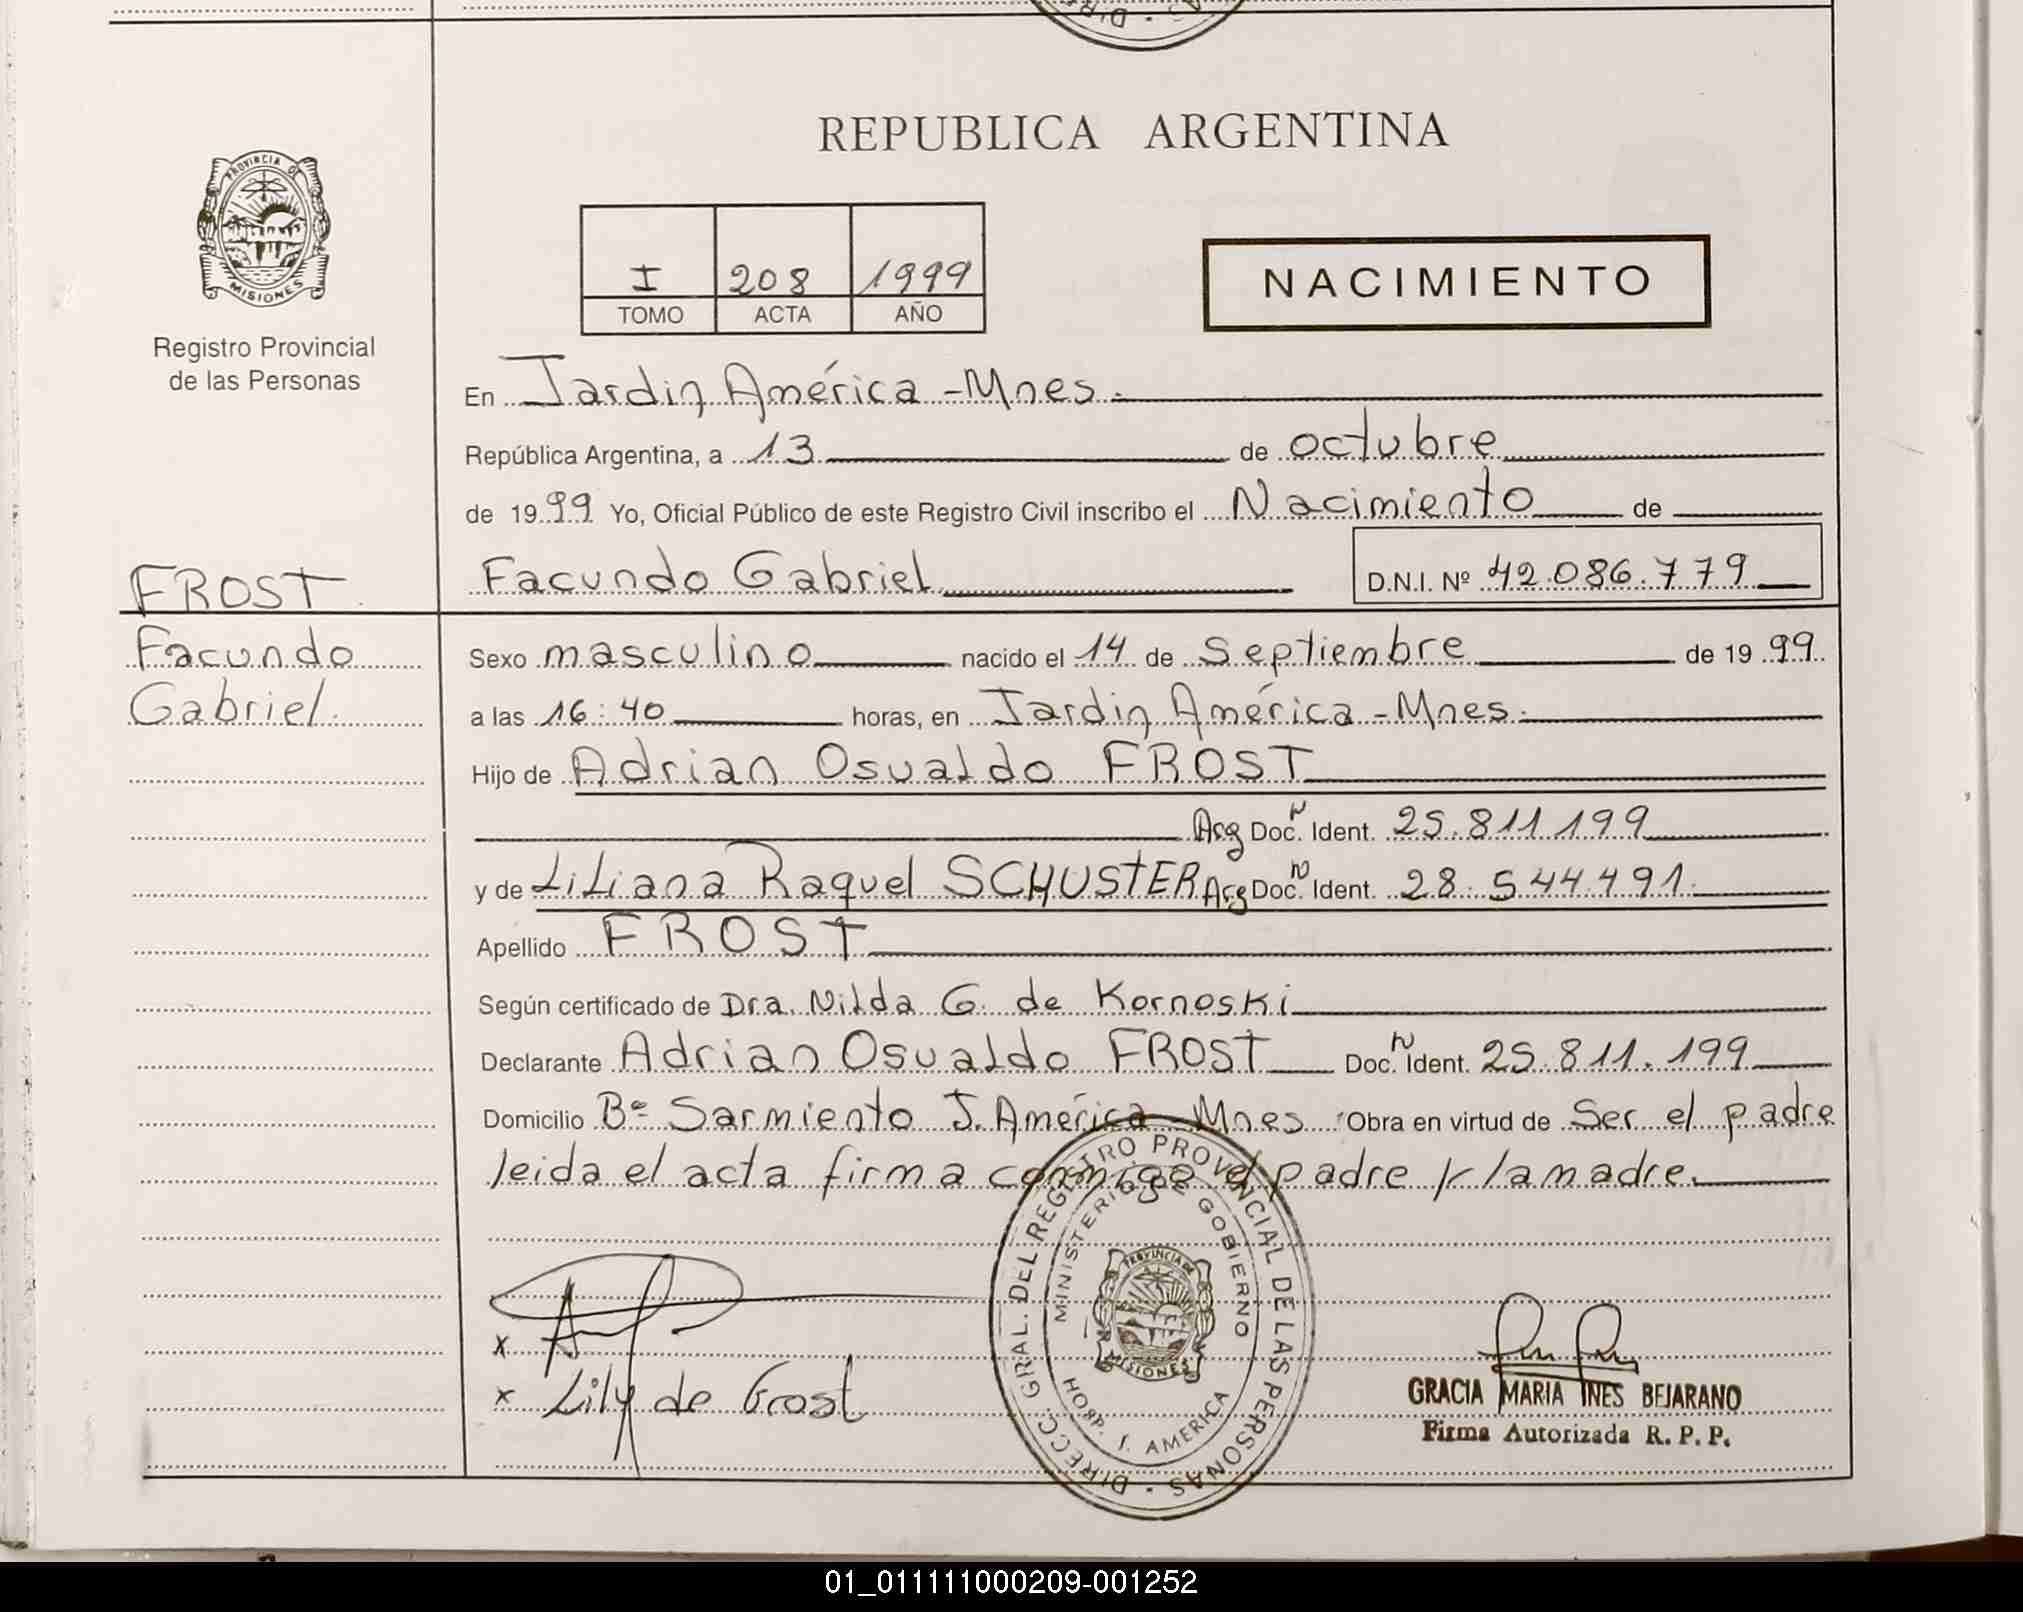 REPUBLICA ARGENTINA
PROVINCIA DE
MISIONES
Registro Provincial
de las Personas
I 208 1999
TOMO ACTA AÑO
NACIMIENTO
En Jardin América - Mnes.
República Argentina, a 13 de octubre
de 1999 Yo, Oficial Público de este Registro Civil inscribo el Nacimiento de
FROST
Facundo
Gabriel.
Facundo Gabriel D.N.I. Nº 42.086.779
Sexo masculino nacido el 14 de Septiembre de 1999
a las 16:40 horas, en Jardin América - Mnes.
Hijo de Adrian Osvaldo FROST
Arg Doc. N Ident. 25.811.199
y de Liliana Raquel SCHUSTER Arg Doc. N Ident. 28.544.491.
Apellido FROST
Según certificado de Dra. Nilda G. de Kornoski
Declarante Adrian Osvaldo FROST Doc. N Ident. 25.811.199
Domicilio Bº Sarmiento J. América Mnes Obra en virtud de Ser el padre
leida el acta firma conmigo el padre y la madre.
DIRECC. GRAL. DEL REGISTRO PROVINCIAL DE LAS PERSONAS
MINISTERIO DE GOBIERNO
PROVINCIA DE
MISIONES
HOSP. J. AMERICA
x
x Lily de Frost
GRACIA MARIA INES BEJARANO
Firma Autorizada R. P. P.
01_011111000209-001252